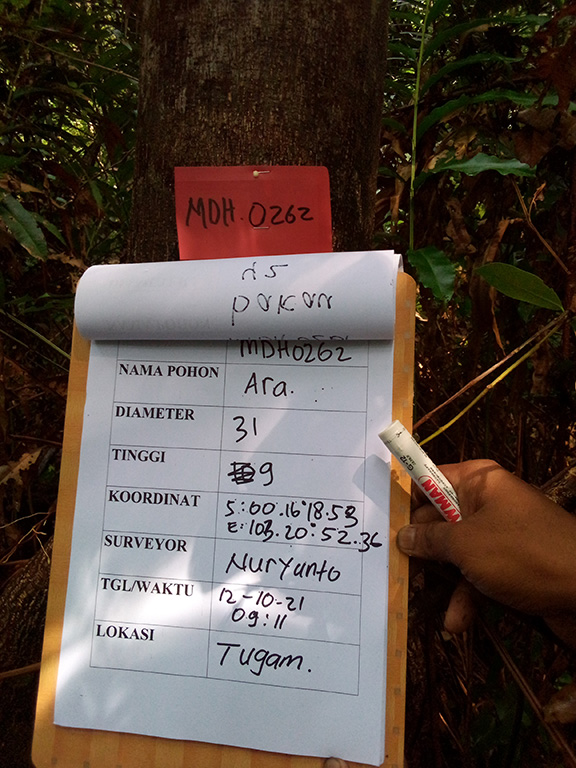 MDH.0262
MDH0262
NAMA POHON Ara.
DIAMETER 31
TINGGI 9
KOORDINAT S:00.16°18.53
E:103.20°52.36
SURVEYOR Nuryanto
TGL/WAKTU 12-10-21
09:11
LOKASI Tugam.